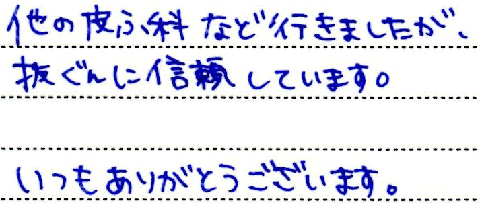 他の皮ふ科など行きましたが、
抜ぐんに信頼しています。
いつもありがとうございます。